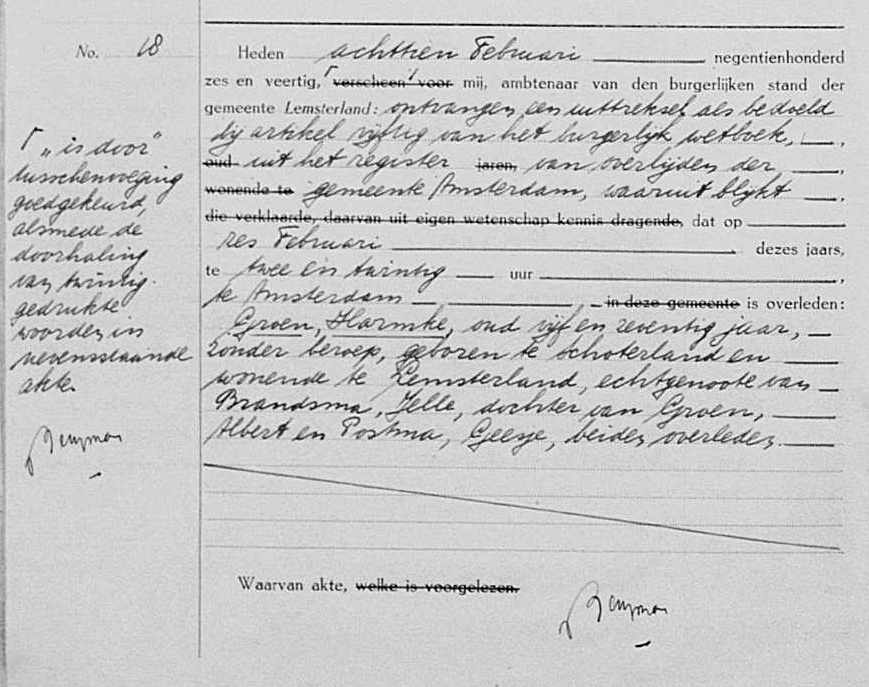 No. 18
Heden achttien Februari negentienhonderd
zes en veertig, ┌ verscheen voor mij, ambtenaar van den burgerlijken stand der
gemeente Lemsterland: ontvangen een uittreksel als bedoeld
bij artikel vijftig van het burgerlijk wetboek,
oud uit het register jaren, van overlijden der
wonende te gemeente Amsterdam, waaruit blijkt
die verklaarde, daarvan uit eigen wetenschap kennis dragende, dat op
zes Februari dezes jaars,
te twee en twintig uur
te Amsterdam, in deze gemeente is overleden:
Groen, Harmke, oud vijf en zeventig jaar,
zonder beroep, geboren te Schoterland en
wonende te Lemsterland, echtgenoote van
Brandsma, Jelle, dochter van Groen,
Albert en Postma, Geesje, beiden overleden.
Waarvan akte, welke is voorgelezen.
┌ „is door"
tusschenvoeging
goedgekeurd,
alsmede de
doorhaling
van twintig
gedrukte
woorden in
nevensstaande
akte.